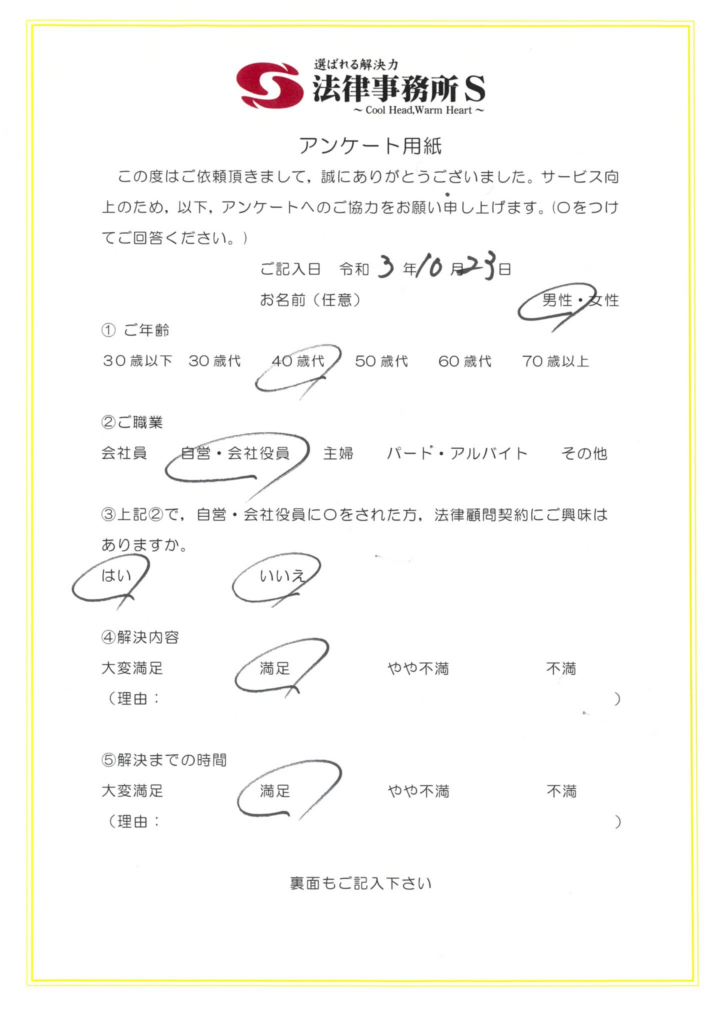 選ばれる解決力
法律事務所S
～ Cool Head,Warm Heart ～
アンケート用紙
この度はご依頼頂きまして，誠にありがとうございました。サービス向
上のため，以下，アンケートへのご協力をお願い申し上げます。（〇をつけ
てご回答ください。）
ご記入日　令和 3 年 10 月 23 日
お名前（任意）　男性・女性
① ご年齢
３０歳以下　30歳代　40歳代　50歳代　60歳代　70歳以上
②ご職業
会社員　自営・会社役員　主婦　パート・アルバイト　その他
③上記②で，自営・会社役員に〇をされた方，法律顧問契約にご興味は
ありますか。
はい　いいえ
④解決内容
大変満足　満足　やや不満　不満
（理由：　）
⑤解決までの時間
大変満足　満足　やや不満　不満
（理由：　）
裏面もご記入下さい